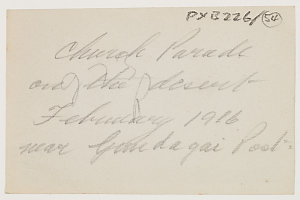 PXB226/54
Church Parade
on the desert
February 1916
near Gundagai Post.